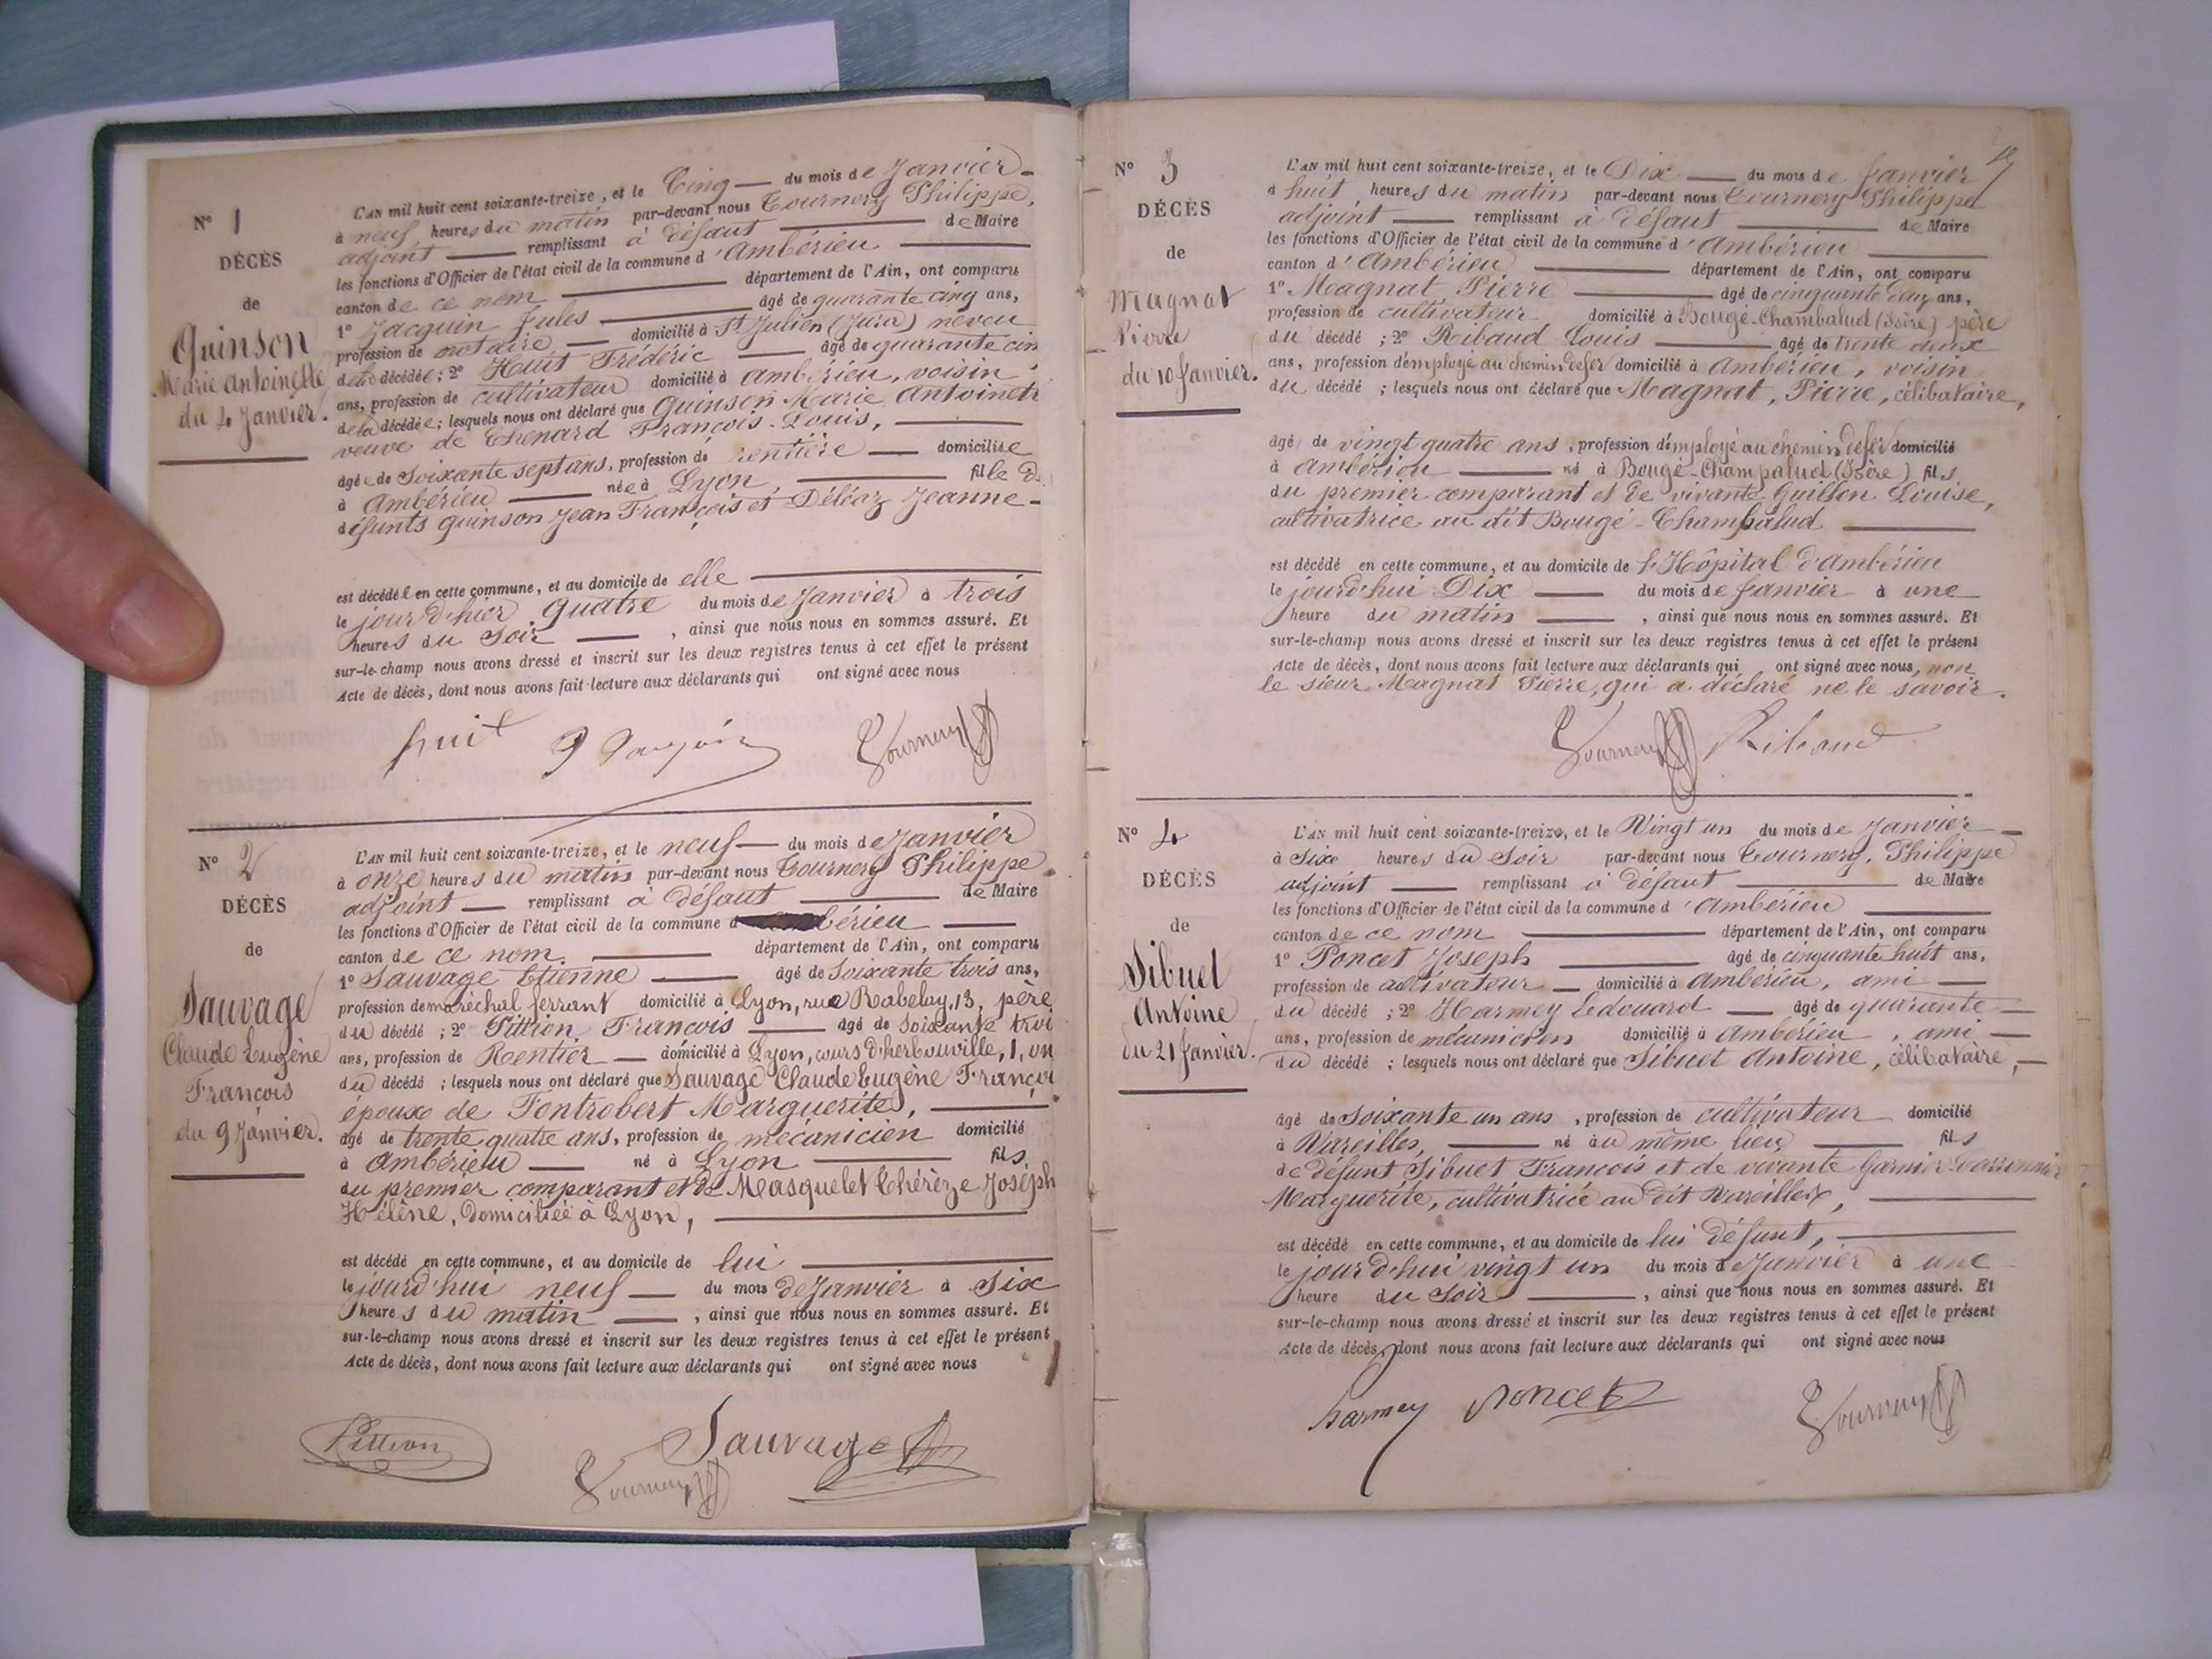 N° 1
DÉCÈS
de
Quinson
Marie Antoinette
du 4 Janvier.
L'AN mil huit cent soixante-treize, et le Cinq du mois de Janvier
à neuf heures du matin par-devant nous Tournery Philippe,
adjoint remplissant à défaut de Maire
les fonctions d'Officier de l'état civil de la commune d'Ambérieu
canton de ce nom département de l'Ain, ont comparu
1° Jacquin Jules âgé de quarante cinq ans,
profession de notaire domicilié à St Julien (Jura) neveu
de la décédée; 2° Huit Frédéric âgé de quarante cin
ans, profession de cultivateur domicilié à Ambérieu, voisin
de la décédée; lesquels nous ont déclaré que Quinson Marie Antoinett
veuve de Chenard François-Louis,
âgée de Soixante sept ans, profession de rentière domiciliée
à Ambérieu née à Lyon, fille de
défunts Quinson Jean François et Déléaz Jeanne
est décédée en cette commune, et au domicile de elle
le jourd'hier quatre du mois de Janvier à trois
heures du Soir, ainsi que nous nous en sommes assuré. Et
sur-le-champ nous avons dressé et inscrit sur les deux registres tenus à cet effet le présent
Acte de décès, dont nous avons fait lecture aux déclarants qui ont signé avec nous
huit J Jacquin Tournery
N° 2
DÉCÈS
de
Sauvage
Claude Eugène
François
du 9 Janvier.
L'AN mil huit cent soixante-treize, et le neuf du mois de Janvier
à onze heures du matin par-devant nous Tournery Philippe
adjoint remplissant à défaut de Maire
les fonctions d'Officier de l'état civil de la commune d'Ambérieu
canton de ce nom. département de l'Ain, ont comparu
1° Sauvage Etienne âgé de Soixante trois ans,
profession de maréchal ferrant domicilié à Lyon, rue Rabelay, 13, père
du décédé; 2° Pittion François âgé de Soixante troi
ans, profession de Rentier domicilié à Lyon, cours d'herbouville, 1, on
du décédé; lesquels nous ont déclaré que Sauvage Claude Eugène Françoi
époux de Fontrobert Marguerite,
âgé de trente quatre ans, profession de mécanicien domicilié
à Ambérieu né à Lyon fils
du premier comparant et de Masquelet Thérèze Joséph
Hélène, domiciliée à Lyon,
est décédé en cette commune, et au domicile de lui
le jourd'hui neuf du mois de Janvier à Six
heures du matin, ainsi que nous nous en sommes assuré. Et
sur-le-champ nous avons dressé et inscrit sur les deux registres tenus à cet effet le présent
Acte de décès, dont nous avons fait lecture aux déclarants qui ont signé avec nous
Pittion Sauvage
Tournery
N° 3
DÉCÈS
de
Magnat
Pierre
du 10 Janvier.
L'AN mil huit cent soixante-treize, et le Dix du mois de Janvier
à huit heures du matin par-devant nous Tournery Philippe
adjoint remplissant à défaut de Maire
les fonctions d'Officier de l'état civil de la commune d'Ambérieu
canton d'Ambérieu département de l'Ain, ont comparu
1° Magnat Pierre âgé de cinquante cinq ans,
profession de cultivateur domicilié à Bougé-Chambalud (Isère) père
du décédé; 2° Ribaud Louis âgé de trente deux
ans, profession d'employé au chemin de fer domicilié à Ambérieu, voisin
du décédé; lesquels nous ont déclaré que Magnat, Pierre, célibataire,
âgé de vingt quatre ans, profession d'employé au chemin de fer domicilié
à Ambérieu né à Bougé-Champalud (Isère) fils
du premier comparant et de vivante Guillon Louise,
cultivatrice au dit Bougé-Chambalud
est décédé en cette commune, et au domicile de l'Hôpital d'Ambérieu
le jourd'hui Dix du mois de Janvier à une
heure du matin, ainsi que nous nous en sommes assuré. Et
sur-le-champ nous avons dressé et inscrit sur les deux registres tenus à cet effet le présent
Acte de décès, dont nous avons fait lecture aux déclarants qui ont signé avec nous, non
le sieur Magnat Pierre, qui a déclaré ne le savoir.
Tournery Ribaud
N° 4
DÉCÈS
de
Sibuet
Antoine
du 21 Janvier.
L'AN mil huit cent soixante-treize, et le Vingt un du mois de Janvier
à Six heures du Soir par-devant nous Tournery, Philippe
adjoint remplissant à défaut de Maire
les fonctions d'Officier de l'état civil de la commune d'Ambérieu
canton de ce nom département de l'Ain, ont comparu
1° Poncet Joseph âgé de cinquante huit ans,
profession de cultivateur domicilié à Ambérieu, ami
du décédé; 2° Harmey Edouard âgé de quarante
ans, profession de mécanicien domicilié à Ambérieu, ami
du décédé; lesquels nous ont déclaré que Sibuet Antoine, célibataire,
âgé de Soixante un ans, profession de cultivateur domicilié
à Vareilles, né au même lieu, fils
de défunt Sibuet François et de vivante Garnier
Marguerite, cultivatrice au dit Vareilles,
est décédé en cette commune, et au domicile de lui défunt,
le jourd'hui vingt un du mois de Janvier à une
heure du Soir, ainsi que nous nous en sommes assuré. Et
sur-le-champ nous avons dressé et inscrit sur les deux registres tenus à cet effet le présent
Acte de décès, dont nous avons fait lecture aux déclarants qui ont signé avec nous
harmey Poncet Tournery